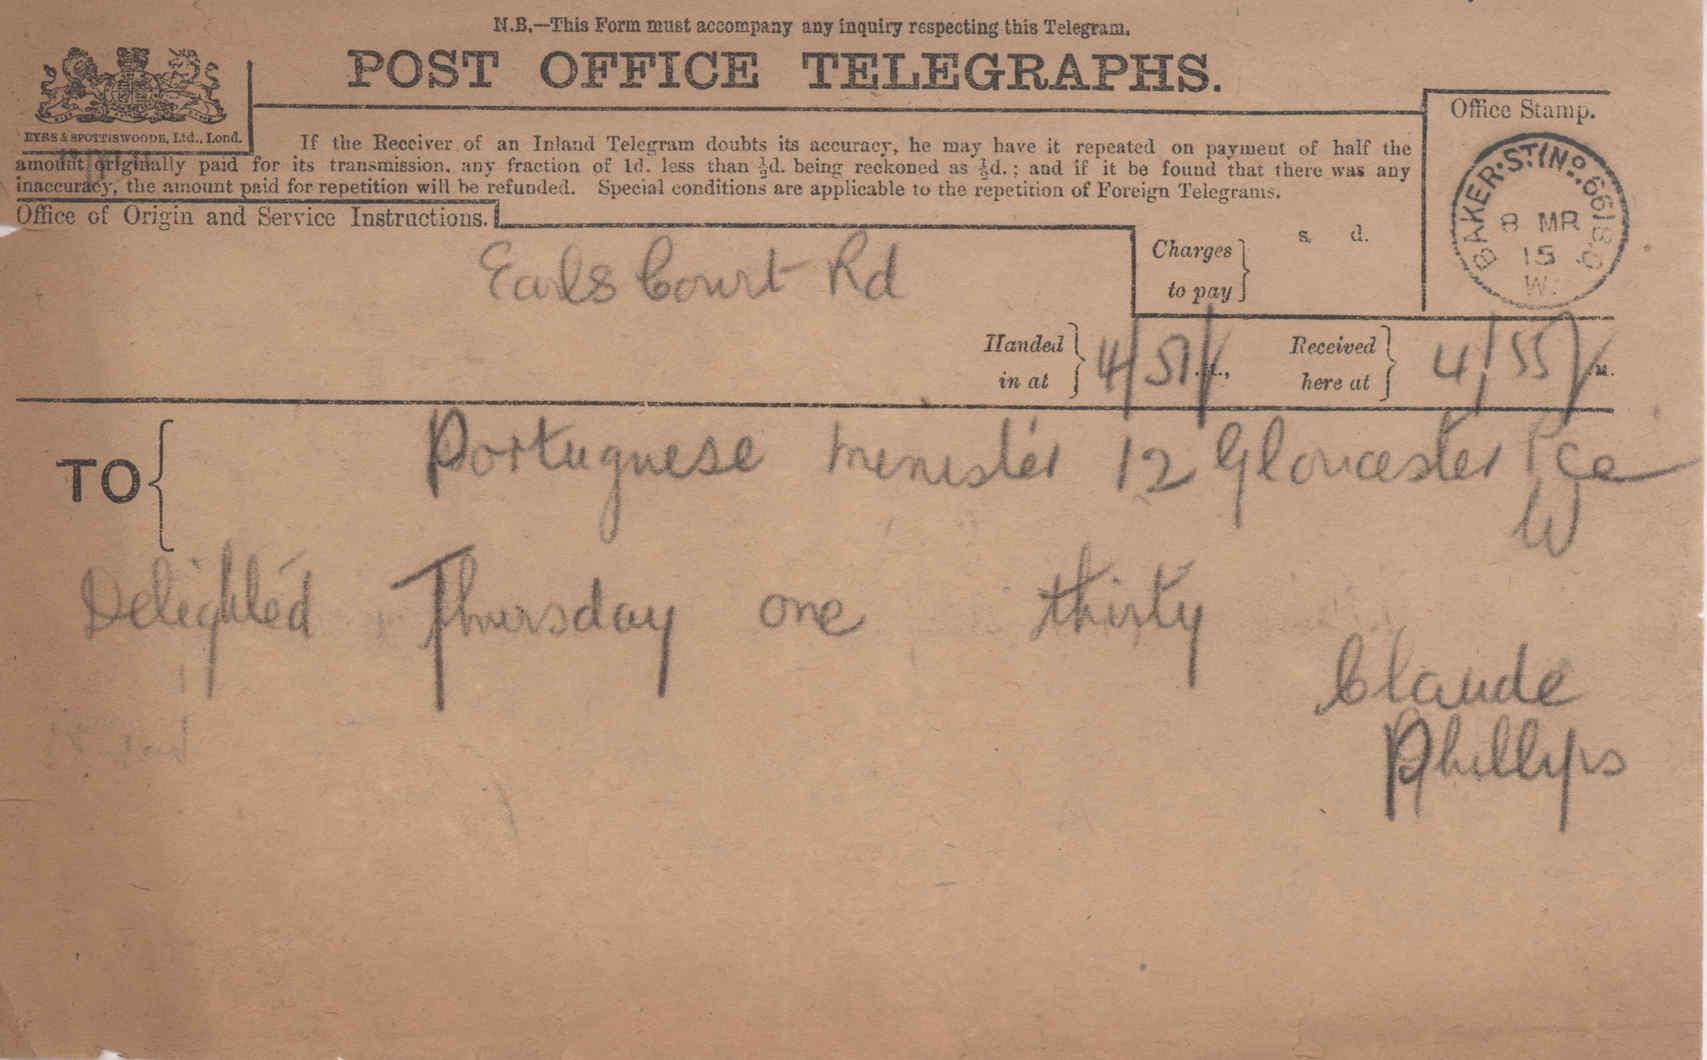 N.B.—This Form must accompany any inquiry respecting this Telegram.
POST OFFICE TELEGRAPHS.
EYRE & SPOTTISWOODE, Ltd., Lond.
If the Receiver of an Inland Telegram doubts its accuracy, he may have it repeated on payment of half the
amount originally paid for its transmission, any fraction of 1d. less than ½d. being reckoned as ½d.; and if it be found that there was any
inaccuracy, the amount paid for repetition will be refunded. Special conditions are applicable to the repetition of Foreign Telegrams.
Office of Origin and Service Instructions.
Earls Court Rd
Charges to pay
s. d.
Office Stamp.
BAKER·ST. (No. 66) B.O
8 MR
15
W.
Handed in at
4/51/
Received here at
4/55/
TO
Portuguese minister 12 Gloucester Pce
W
Delighted Thursday one thirty
Claude
Phillips